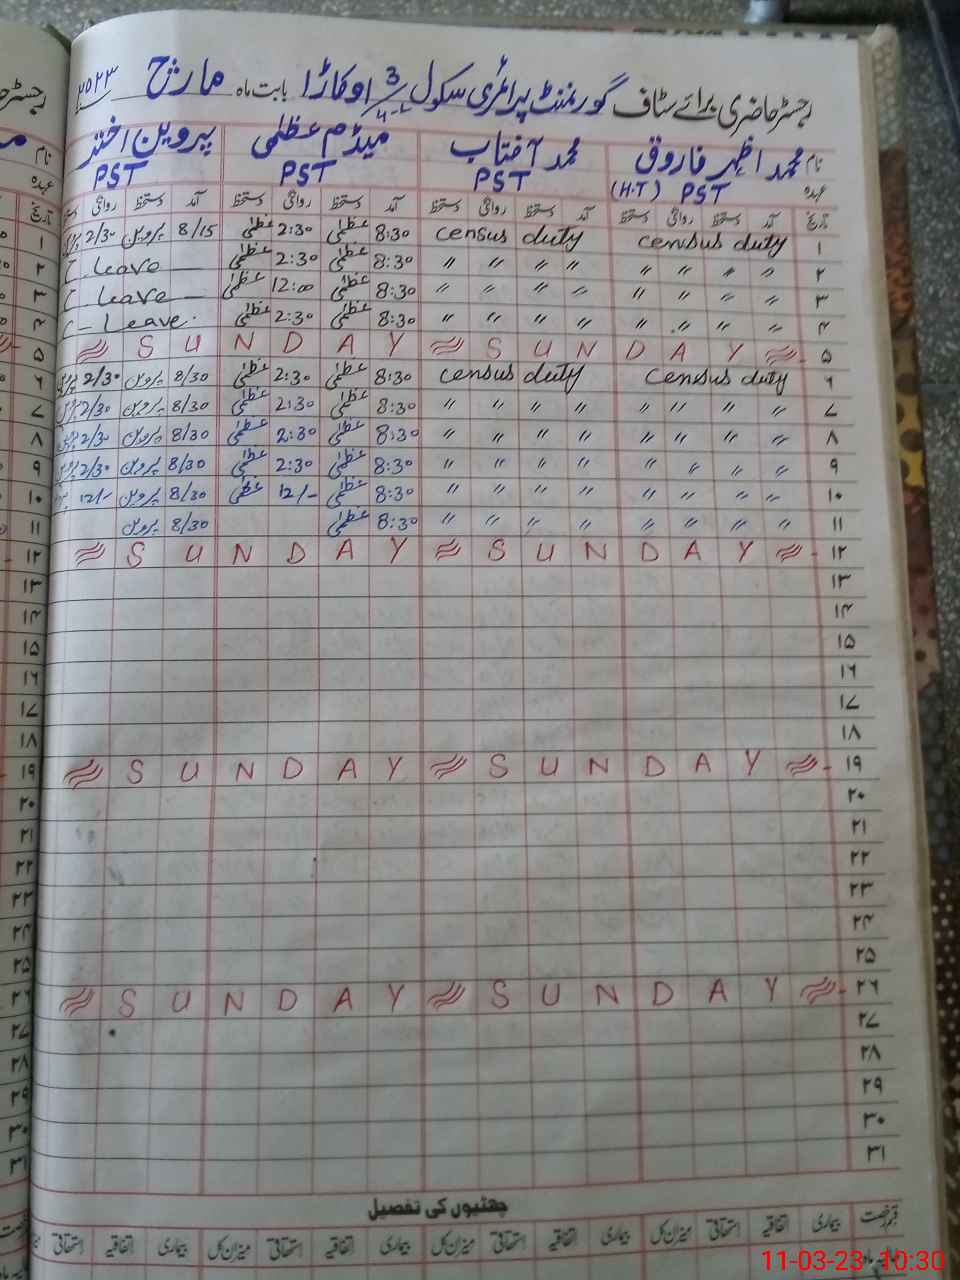 رجسٹر حاضری برائے سٹاف گورنمنٹ پرائمری سکول 3/4-L اوکاڑا بابت ماہ مارچ ۲۰۲۳
نام محمد اظہر فاروق محمد آفتاب میڈم عظمٰی پروین اختر
عہدہ PST (H.T) PST PST PST
تاریخ آمد دستخط روانگی دستخط آمد دستخط روانگی دستخط آمد دستخط روانگی دستخط آمد دستخط روانگی
۱ census duty census duty 8:30 عظمٰی 2:30 عظمٰی 8/15 پروین 2/30
۲ " " " " " " " " 8:30 عظمٰی 2:30 عظمٰی Leave
۳ " " " " " " " " 8:30 عظمٰی 12:00 عظمٰی Leave
۴ " " " " " " " " 8:30 عظمٰی 2:30 عظمٰی Leave
۵ SUNDAY SUNDAY
۶ census duty census duty 8:30 عظمٰی 2:30 عظمٰی 8/30 پروین 2/30
۷ " " " " " " " " 8:30 عظمٰی 2:30 عظمٰی 8/30 پروین 2/30
۸ " " " " " " " " 8:30 عظمٰی 2:30 عظمٰی 8/30 پروین 2/30
۹ " " " " " " " " 8:30 عظمٰی 2:30 عظمٰی 8/30 پروین 2/30
۱۰ " " " " " " " " 8:30 عظمٰی 12/- عظمٰی 8/30 پروین 12/-
۱۱ " " " " " " " " 8:30 عظمٰی 8/30 پروین
۱۲ SUNDAY SUNDAY
۱۳
۱۴
۱۵
۱۶
۱۷
۱۸
۱۹ SUNDAY SUNDAY
۲۰
۲۱
۲۲
۲۳
۲۴
۲۵
۲۶ SUNDAY SUNDAY
۲۷
۲۸
۲۹
۳۰
۳۱
چھٹیوں کی تفصیل
قسم رخصت بیماری اتفاقیہ استحقاقی میزان کل بیماری اتفاقیہ استحقاقی میزان کل بیماری اتفاقیہ استحقاقی میزان کل بیماری اتفاقیہ استحقاقی
11-03-23 10:30